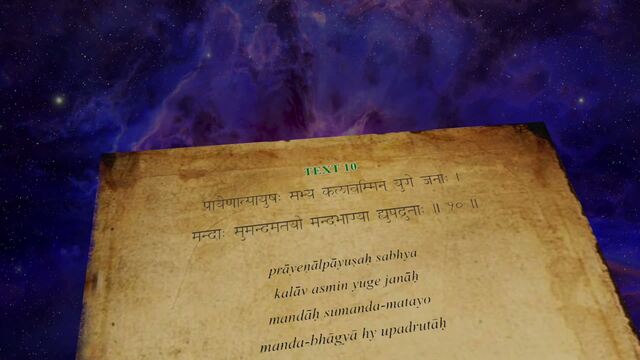 TEXT 10
प्रायेणाल्पायुषः सभ्य कलावस्मिन युगे जनाः ।
मन्दाः सुमन्दमतयो मन्दभाग्या ह्युपद्रुताः ॥ १० ॥
prāyeṇālpāyuṣaḥ sabhya
kalāv asmin yuge janāḥ
mandāḥ sumanda-matayo
manda-bhāgyā hy upadrutāḥ